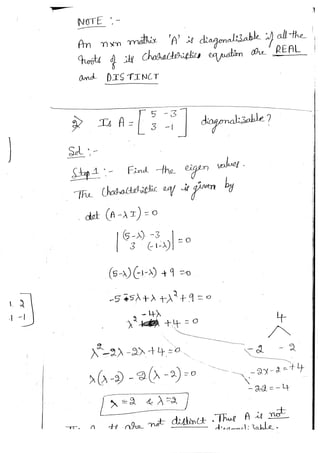 NOTE :-
An nxn mathix 'A' is diagonalizable if all the
roots of its Characteristics equation are REAL
and DISTINCT
Q) Is A = [ 5 -3
3 -1 ] diagonalizable?
Sol :-
Step 1 :- Find the eigen values.
The Characteristic eqⁿ is given by
det (A-λI) = 0
| (5-λ) -3
3 (-1-λ) | = 0
(5-λ)(-1-λ) + 9 = 0
-5-5λ+λ+λ²+9 = 0
λ² -4λ +4 = 0
4
λ²-2λ-2λ+4 = 0
-2 -2
λ(λ-2) - 2(λ-2) = 0
-2x-2 = +4
-2-2 = -4
λ=2 & λ=2
1 2
1 -1 ]
are not distinct. Thus A is not